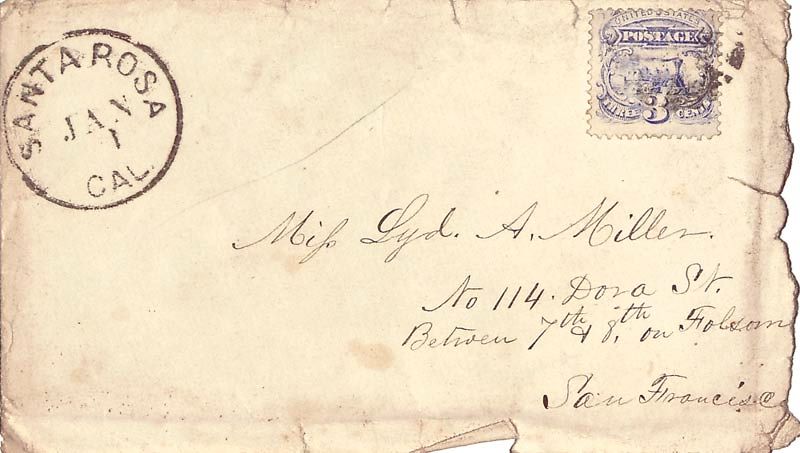 SANTA ROSA
JAN
1
CAL.
UNITED STATES
POSTAGE
THREE 3 CENTS
Miss Lyd. A. Miller.
No 114. Dora St.
Betwen 7th & 8th, on Folsom
San Francisco